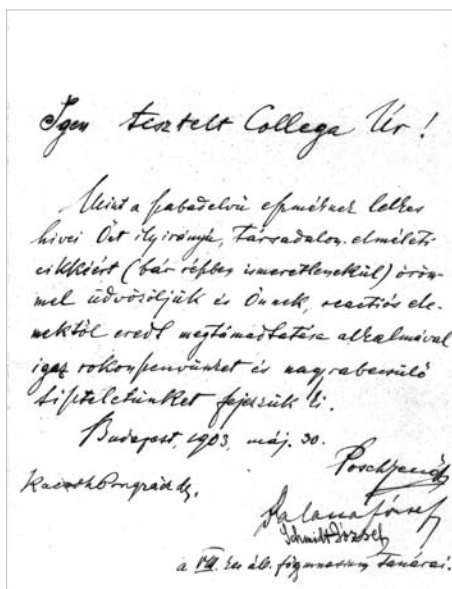 Igen tisztelt Collega Úr!
Mint a szabadelvű eszméknek lelkes
hivei Önt ilyirányu, társadalom-elméleti
cikkéért (bár részben ismeretlenekül) öröm-
mel üdvözöljük és Önnek, reactiós ele-
mektől eredt megtámadtatása alkalmával
igaz rokonszenvünket és nagyrabecsülő
tiszteletünket fejezzük ki.
Budapest, 1903, máj. 30.
Posch Jenő
Kacsoh Pongrácz dr.
József
Schmidt József
a VIII. ker. áll. főgymnasium tanárai.